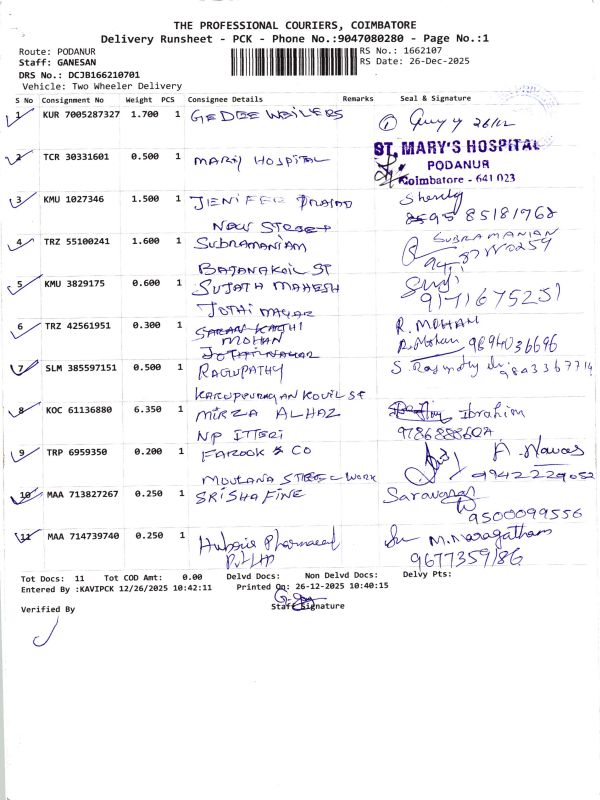 THE PROFESSIONAL COURIERS, COIMBATORE
Delivery Runsheet - PCK - Phone No.:9047080280 - Page No.:1
Route: PODANUR RS No.: 1662107
Staff: GANESAN RS Date: 26-Dec-2025
DRS No.: DCJB166210701
Vehicle: Two Wheeler Delivery
S No Consignment No Weight PCS Consignee Details Remarks Seal & Signature
1 KUR 7005287327 1.700 1 26/12
2 TCR 30331601 0.500 1 MARY HOSPITAL ST. MARY'S HOSPITAL
PODANUR
Coimbatore - 641 023
3 KMU 1027346 1.500 1 JENIFER PRASAD
NEW STREET 95 85181768
4 TRZ 55100241 1.600 1 SUBRAMANIAM SUBRAMANIAN
BAJANAKOIL ST
5 KMU 3829175 0.600 1 SUJATA MAHESH
JOTHI NAGAR 9171675251
6 TRZ 42561951 0.300 1 R. MOHAN
MOHAN R. Mohan 9894036696
JOTHINAGAR
7 SLM 385597151 0.500 1 RAGUPATHY
KARUPPURAYAN KOVIL ST
8 KOC 61136880 6.350 1 MIRZA ALHAZ Ibrahim
NP ITTERI
9 TRP 6959350 0.200 1 FAROOK & CO A. Nawas
MOULANA STREET WORK 9942229052
10 MAA 713827267 0.250 1 SRISHA FINE Saravanan
9500099556
11 MAA 714739740 0.250 1 M. Maragatham
9677359186
Tot Docs: 11 Tot COD Amt: 0.00 Delvd Docs: Non Delvd Docs: Delvy Pts:
Entered By :KAVIPCK 12/26/2025 10:42:11 Printed On: 26-12-2025 10:40:15
Verified By Staff Signature